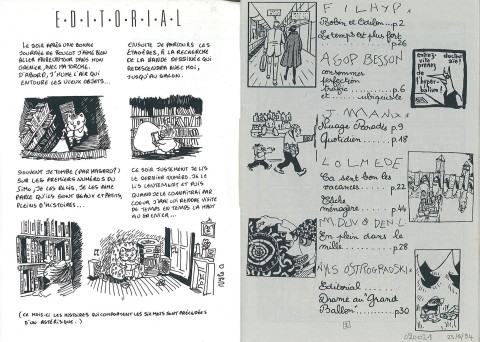 EDITORIAL
LE SOIR APRÈS UNE BONNE
JOURNÉE DE BOULOT J'AIME BIEN
ALLER FAREUUTOUR DANS MON
GRENIER, AVEC MA TORCHE.
D'ABORD, J'HUME L'AIR QUI
ENTOURE LES VIEUX OBJETS...
ENSUITE JE PARCOURS LES
ÉTAGÈRES, À LA RECHERCHE
DE LA BANDE DESSINÉE QUI
REDESCENDRA AVEC MOI,
JUSQU'AU SALON.
SOUVENT JE TOMBE (PAR HASARD?)
SUR LES PREMIERS NUMÉROS DU
SIMO, JE LES RELIS, JE LES AIME
PARCE QU'ILS SONT BEAUX ET PETITS,
PLEINS D'HISTOIRES...
CE SOIR JUSTEMENT JE LIS
LE DERNIER NUMÉRO. JE LE
LIS LENTEMENT ET PUIS
QUAND JE LE CONNAÎTRAI PAR
COEUR J'IRAI LUI RENDRE VISITE
DE TEMPS EN TEMPS LÀ HAUT
AU GRENIER...
(CE MOIS-CI LES HISTOIRES QUI COMPORTENT LES SIX MOTS SONT PRÉCÉDÉES
D'UN ASTÉRISQUE.)
FILHYP
Robin et Odilon...p.2
Le temps est plus fort
p26
AGOP BESSON
consommer
perfection
trafic...p.6
et ubiquiable
J. MANIX
Nuage Paradis p.9
Quotidien...p.18
LOLMEDE
Ca sent bon les
vacances....p.22
Tâche
ménagère...p.44
M DUV O DEN L
En plein dans le
mille......p.28
NYLS OSTROGRADSKI
Editorial
Drame au Grand
Ballon....p30
entrez
vite
docteur